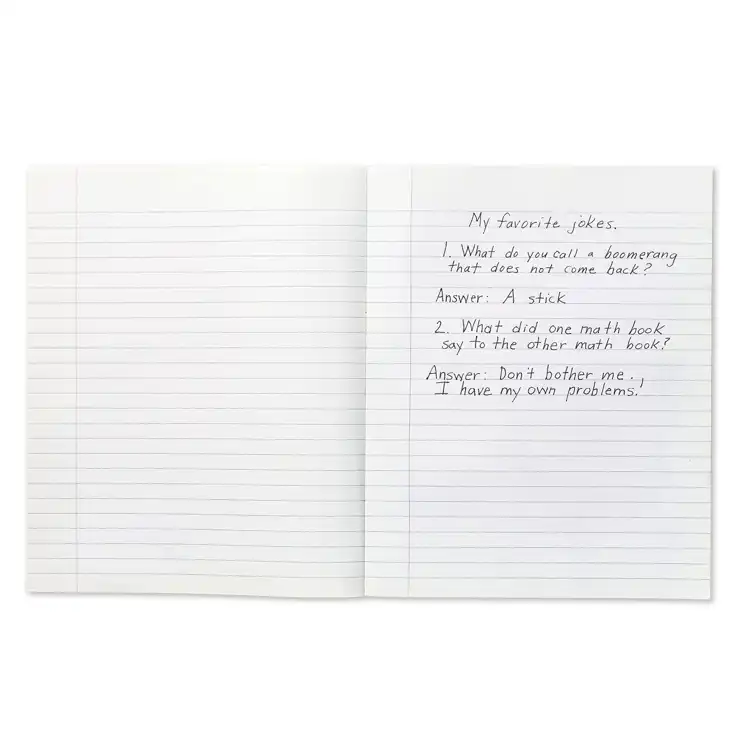 My favorite jokes.
1. What do you call a boomerang
that does not come back?
Answer: A stick
2. What did one math book
say to the other math book?
Answer: Don't bother me.
I have my own problems!